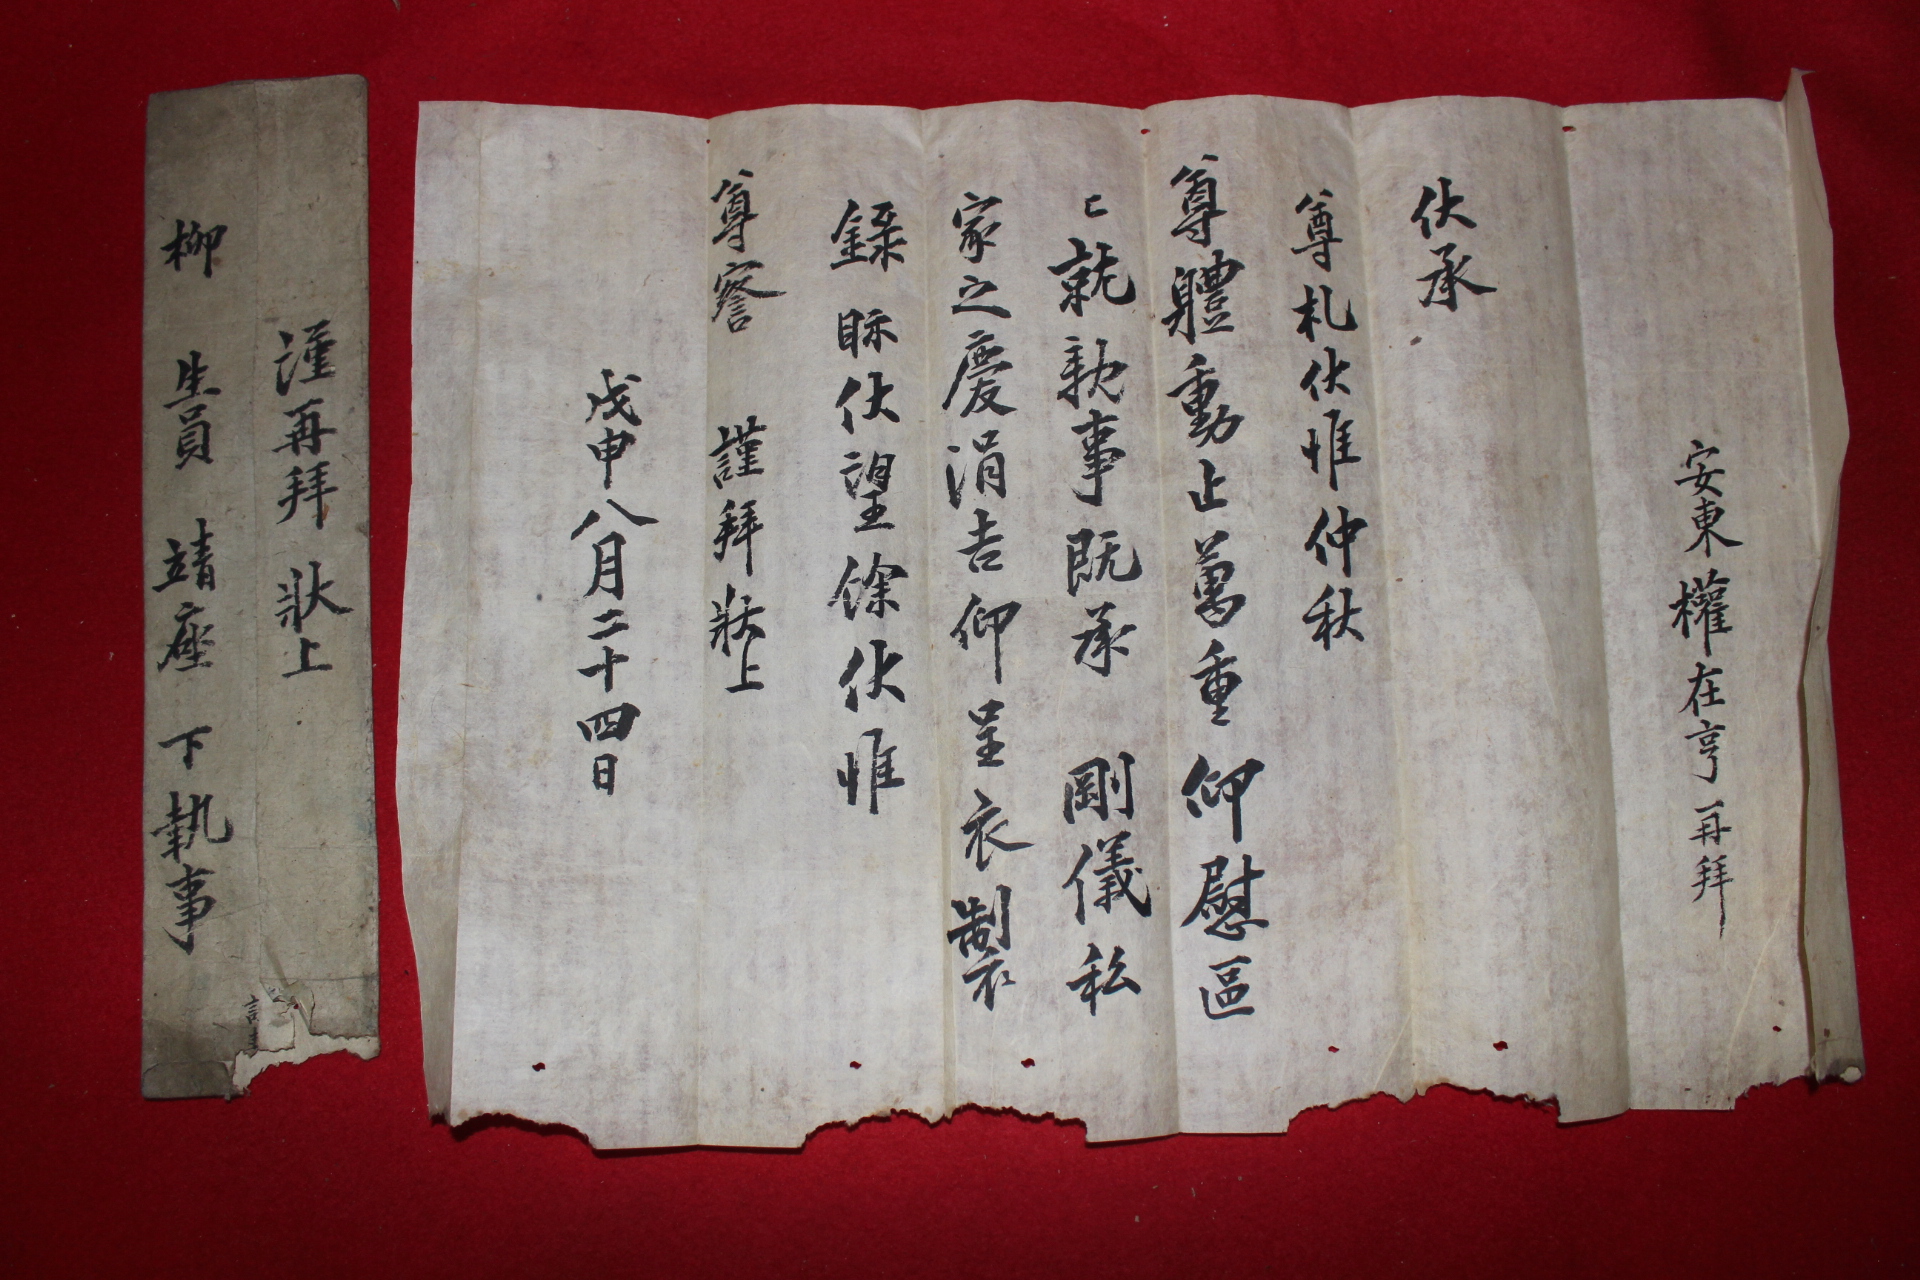 安東權在亨再拜
伏承
尊札伏惟仲秋
尊體動止萬重仰慰區
〻就親事旣承 剛儀私
家之慶涓吉仰呈衣製
錄眎伏望餘伏惟
尊察 謹拜狀上
戊申八月二十四日
謹再拜 狀上
柳 生員 靖座 下執事